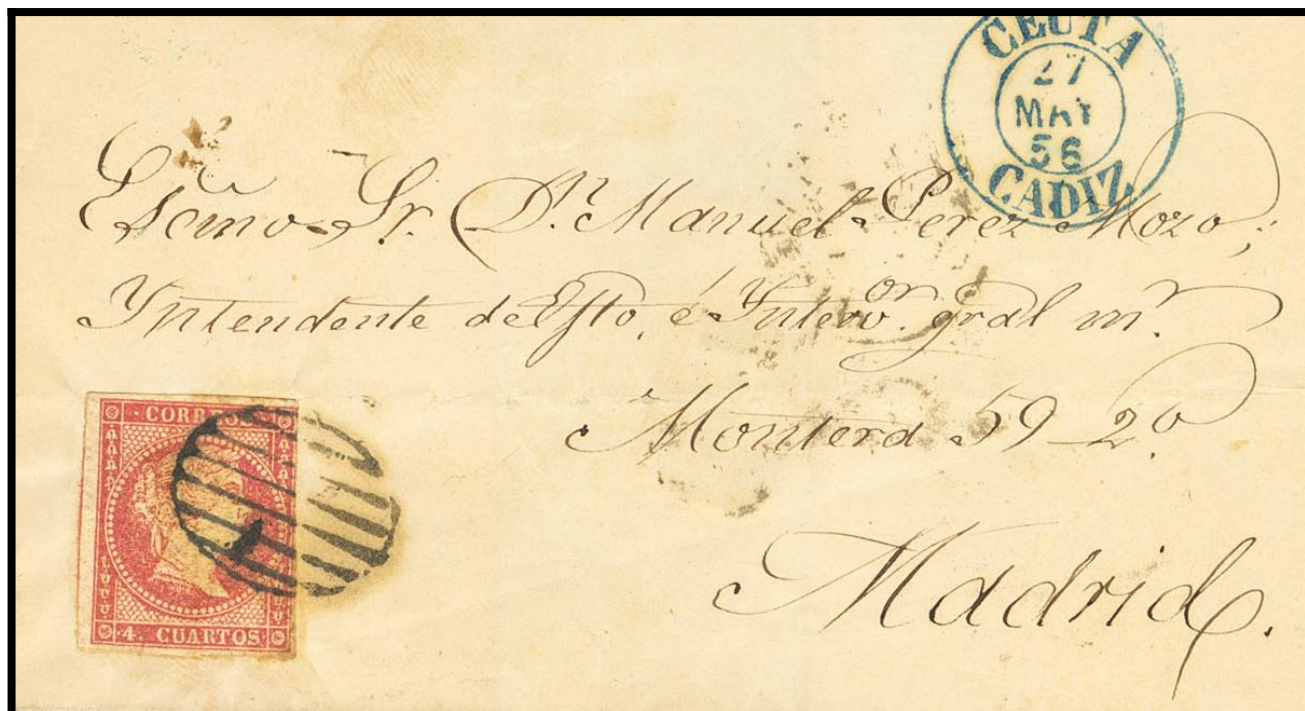 CEUTA
27
MAY
56
CADIZ
Escmo Sr. Dn. Manuel Perez Mozo;
Yntendente de Efto. é Yntervor. gral mr.
Montera 59 2º
Madrid.
CORREOS
4. CUARTOS